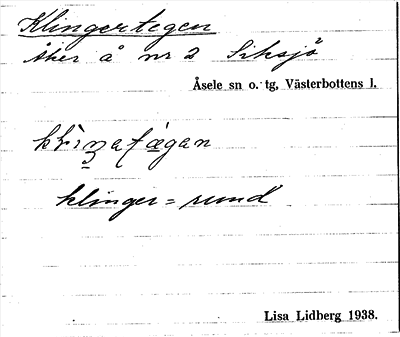 Klingertegen
åker å nr 2 Siksjö
Åsele sn o. tg, Västerbottens l.
klinger = rund
Lisa Lidberg 1938.